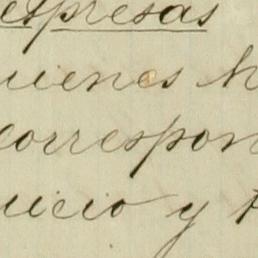 espresas
uienes h
correspon
uicio y